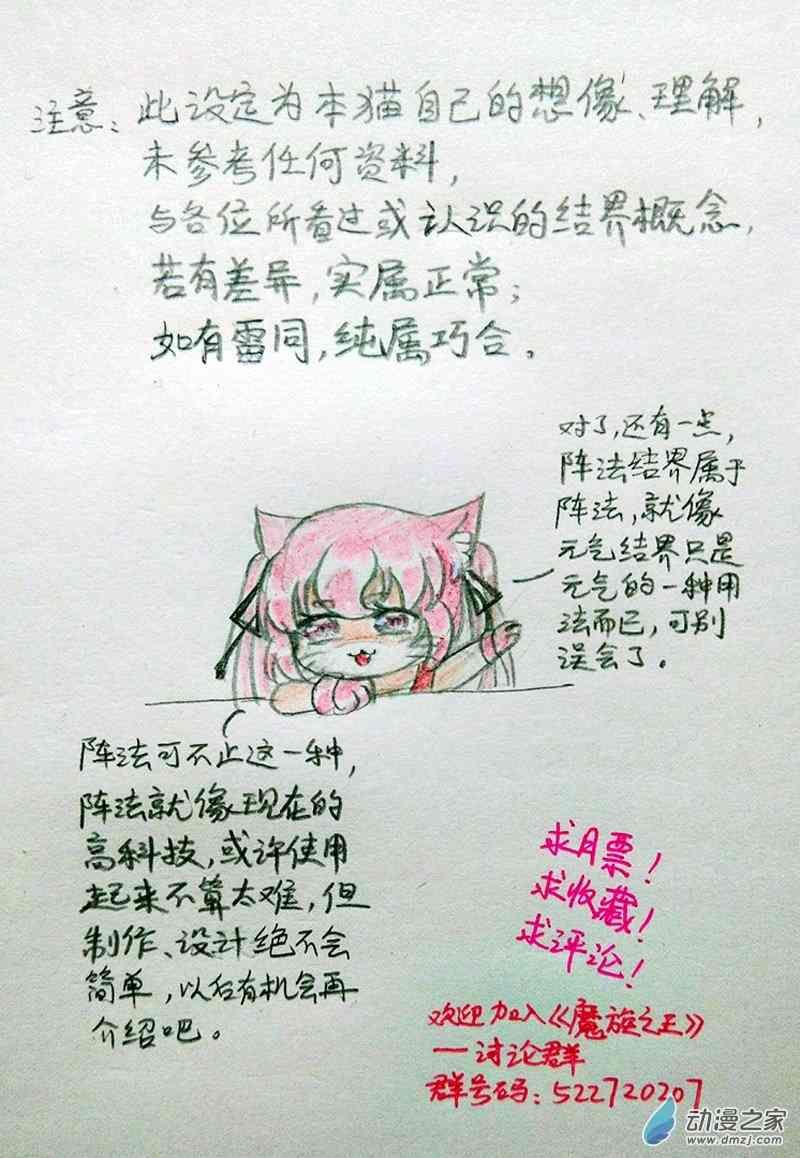 注意：此设定为本猫自己的想像、理解，
未参考任何资料，
与各位所看过或认识的结界概念，
若有差异，实属正常；
如有雷同，纯属巧合。
对了，还有一点，
阵法结界属于
阵法，就像
元气结界只是
元气的一种用
法而已，可别
误会了。
阵法可不止这一种，
阵法就像现在的
高科技，或许使用
起来不算太难，但
制作、设计绝不会
简单，以后有机会再
介绍吧。
求月票！
求收藏！
求评论！
欢迎加入《魔族之王》
一讨论群
群号码：522720207
动漫之家
www.dmzj.com